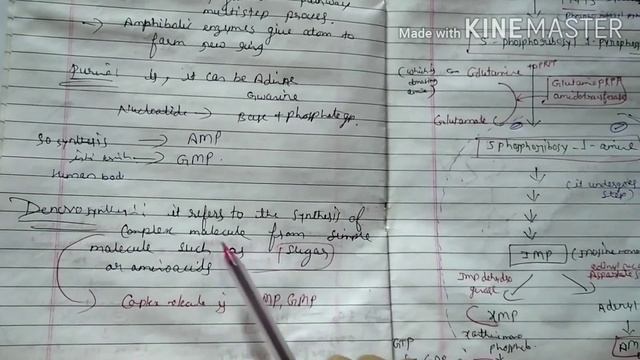 pathway
multistep proces.
→ Amphibolic enzymes give atom to
form new ring
Purine is, it can be Adine
Gwanine
Nucleotide → Base + phosphate gp.
So synthesis → AMP
→ GMP.
Human bod
Denovo synthesis: it refers to the synthesis of
Complex molecule from simple
molecule such as sugar
or aminoacids
MP, GMP
Made with KINEMASTER
5-phosphoribosyl 1-pyrophosp
(which is
donating
amine)
Glutamine PRPP
Glutamine PRPP
amidotransferase
Glutamate
5 phosphoribosyl-1-amine
(it undergoes
step)
IMP (inosine mono
IMP dehydro
XMP
Adenyl
GTP
phosphate
AM